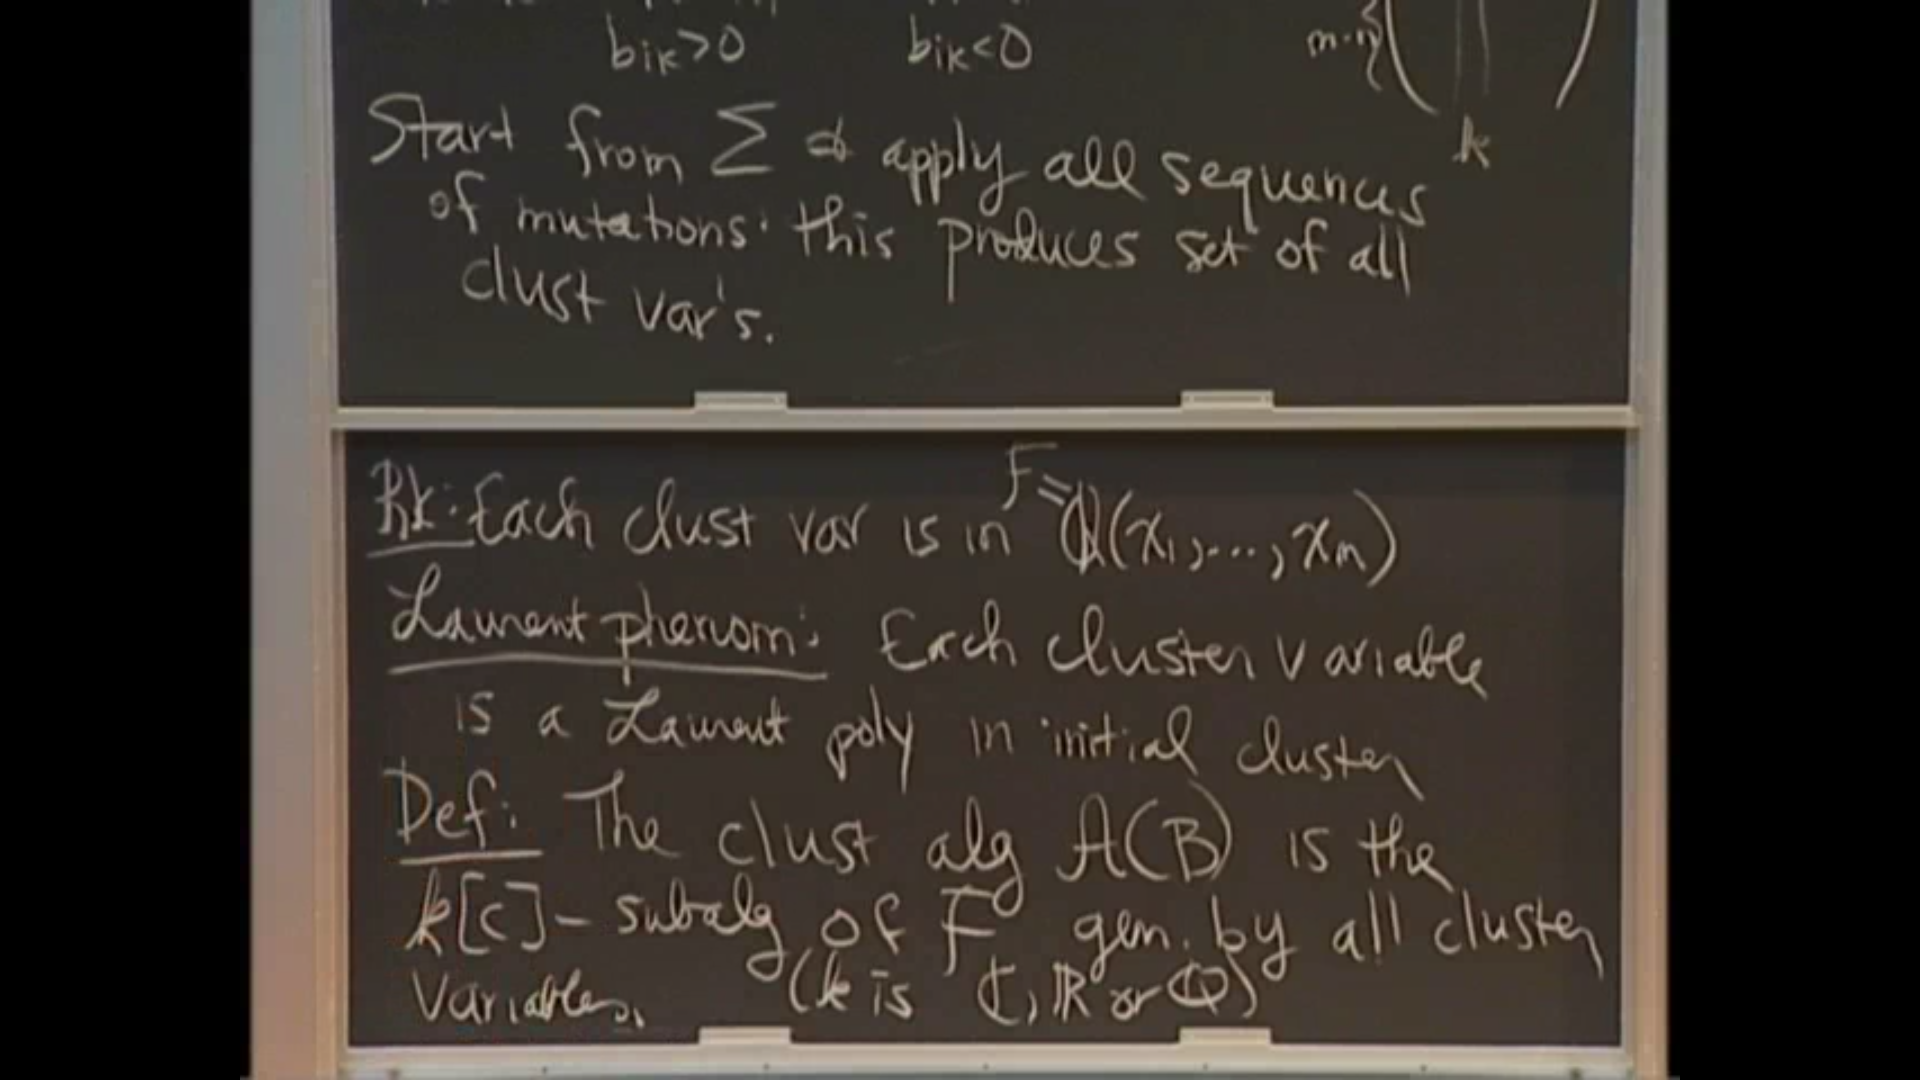 bik>0 bik<0 m-n{
k
Start from Σ & apply all sequences
of mutations. this produces set of all
clust var's.
Rk: Each clust var is in F=Q(x₁,...,xₘ)
Laurent phenom: Each cluster variable
is a Laurent poly in initial cluster
Def: The clust alg A(B) is the
k[c]-subalg of F gen. by all cluster
variables. (k is ℂ, ℝ or ℚ)